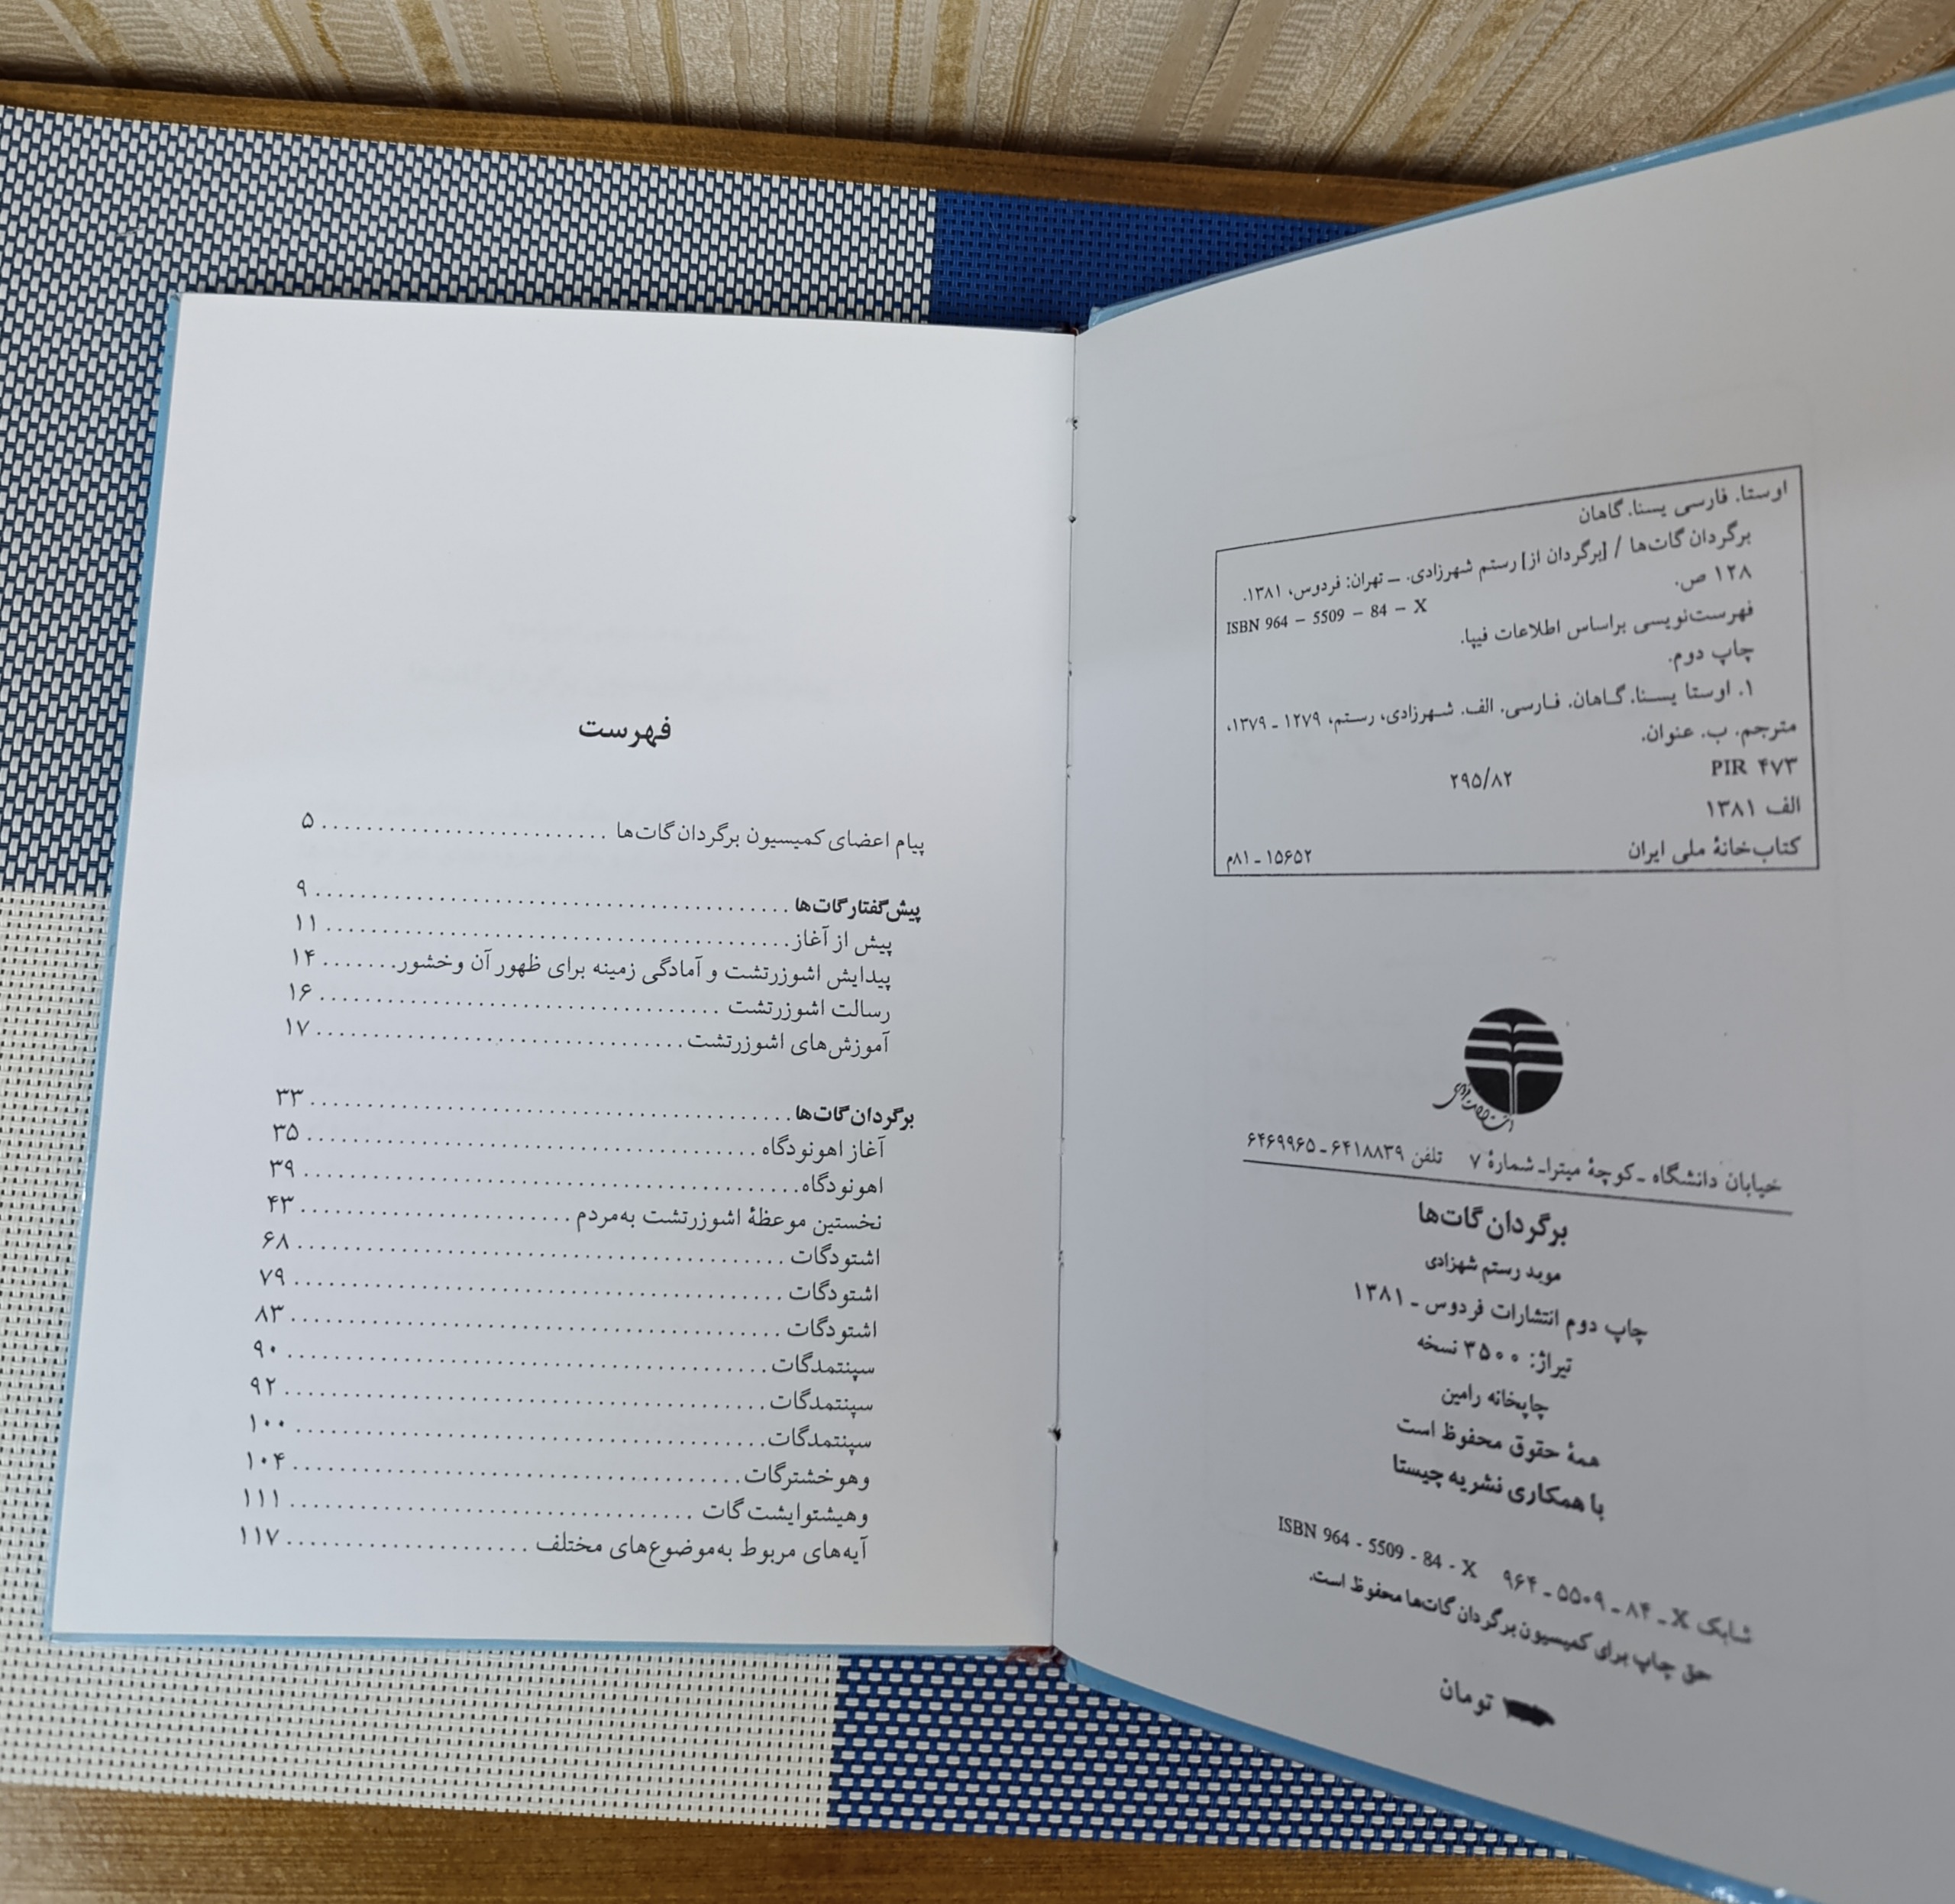 اوستا. فارسی یسنا. گاهان
برگردان گات‌ها / [برگردان از] رستم شهرزادی. ــ تهران: فردوس، ۱۳۸۱.
۱۲۸ ص.
ISBN 964 – 5509 – 84 – X
فهرست‌نویسی براساس اطلاعات فیپا.
چاپ دوم.
۱. اوستا یسنا. گاهان. فارسی. الف. شهرزادی، رستم، ۱۲۷۹ ـ ۱۳۷۹،
مترجم. ب. عنوان.
PIR ۴۷۳ ۲۹۵/۸۲
الف ۱۳۸۱
کتاب‌خانهٔ ملی ایران ۱۵۶۵۲ ـ ۸۱م
خیابان دانشگاه ـ کوچهٔ میترا ـ شمارهٔ ۷ تلفن ۶۴۱۸۸۳۹ ـ ۶۴۶۹۹۶۵
برگردان گات‌ها
موبد رستم شهزادی
چاپ دوم انتشارات فردوس ـ ۱۳۸۱
تیراژ: ۳۵۰۰ نسخه
چاپخانه رامین
همهٔ حقوق محفوظ است
با همکاری نشریه چیستا
شابک X ـ ۸۴ ـ ۵۵۰۹ ـ ۹۶۴ ISBN 964 - 5509 - 84 - X
حق چاپ برای کمیسیون برگردان گات‌ها محفوظ است.
تومان
فهرست
پیام اعضای کمیسیون برگردان گات‌ها ........................... ۵
پیش‌گفتار گات‌ها ........................... ۹
پیش از آغاز ........................... ۱۱
پیدایش اشوزرتشت و آمادگی زمینه برای ظهور آن وخشور ....... ۱۴
رسالت اشوزرتشت ........................... ۱۶
آموزش‌های اشوزرتشت ........................... ۱۷
برگردان گات‌ها ........................... ۳۳
آغاز اهونودگاه ........................... ۳۵
اهونودگاه ........................... ۳۹
نخستین موعظهٔ اشوزرتشت به‌مردم ........................... ۴۳
اشتودگات ........................... ۶۸
اشتودگات ........................... ۷۹
اشتودگات ........................... ۸۳
سپنتمدگات ........................... ۹۰
سپنتمدگات ........................... ۹۲
سپنتمدگات ........................... ۱۰۰
وهوخشترگات ........................... ۱۰۴
وهیشتوایشت گات ........................... ۱۱۱
آیه‌های مربوط به‌موضوع‌های مختلف ..................... ۱۱۷